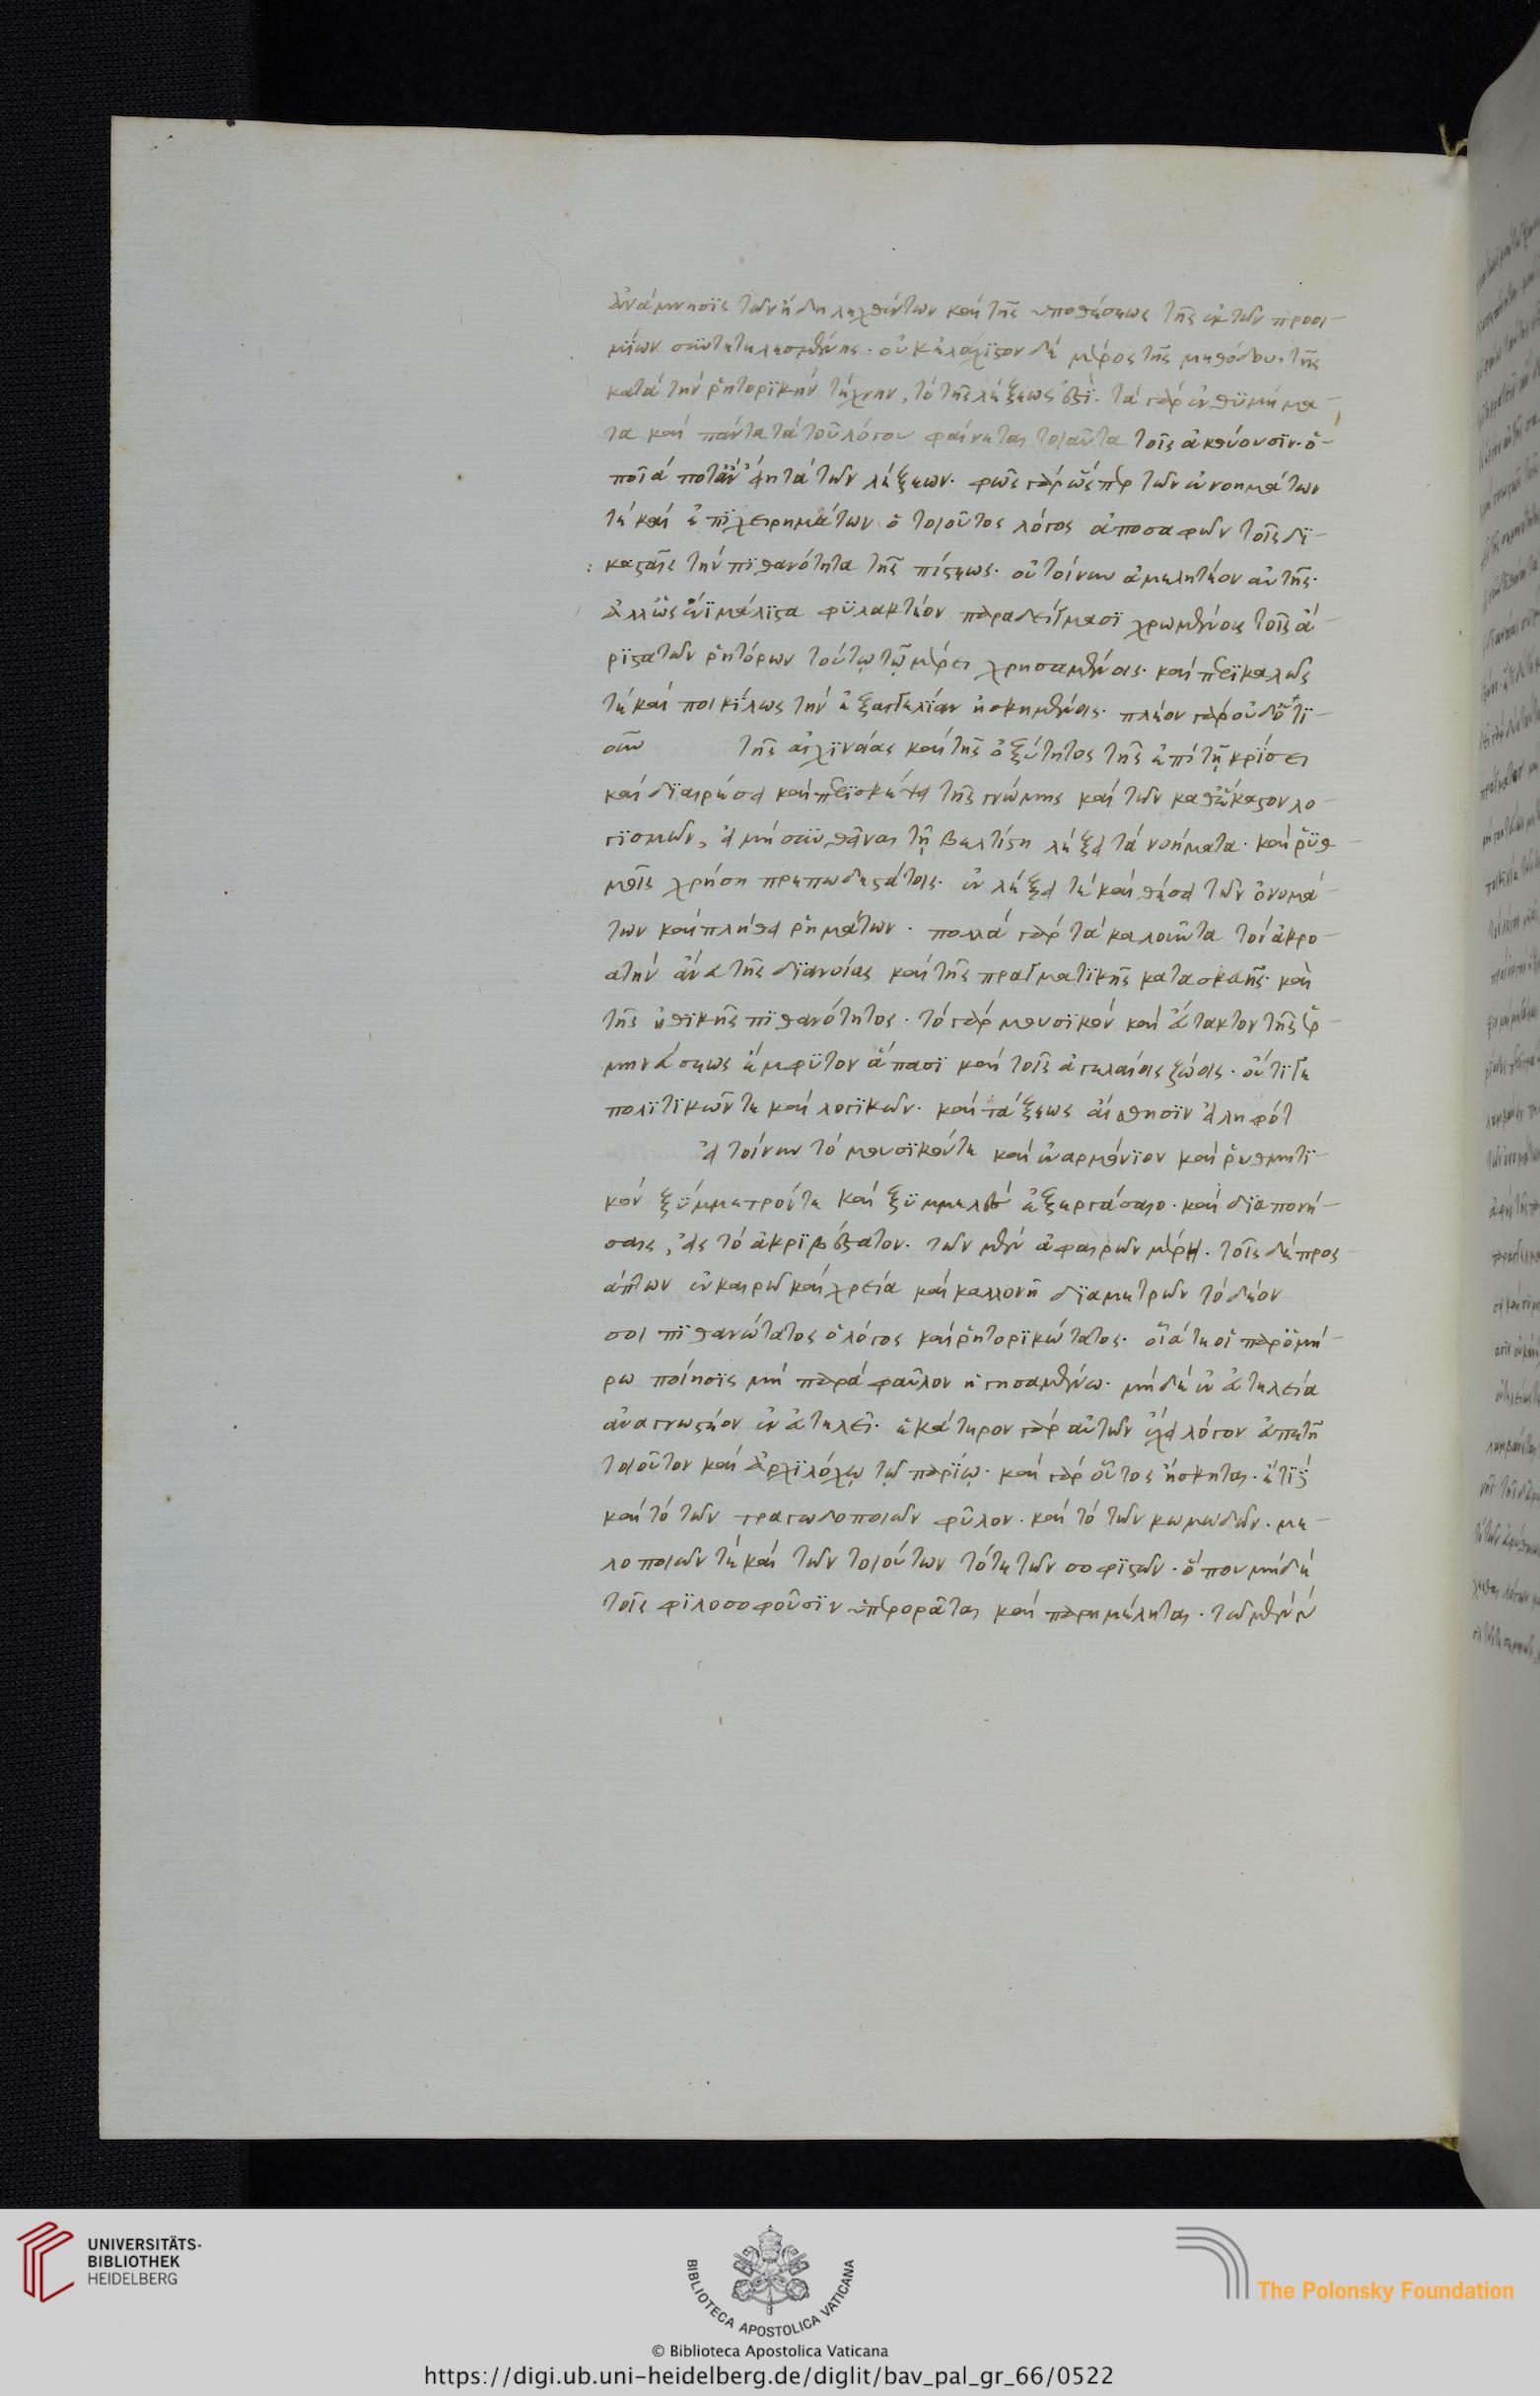 ἀνάμνησϊς τῶν ἤδη λεχθέντων καὶ τῆς ὑποθέσεως τῆς ἐκ τῶν προοι-
μίων συντετελεσμένης. οὐκ ἐλάχϊστον δὲ μέρος τῆς μεθόδου. τῆς
κατὰ τὴν ῥητορϊκὴν τέχνην, τὸ τῆς λέξεως ἐστϊ. τὰ γὰρ ἐνθϋμήμα-
τα καὶ πάντα τὰ τοῦ λόγου φαίνεται τοιαῦτα τοῖς ἀκούουσϊν. ὁ-
ποῖά ποτ' ἂν ἔῃ τὰ τῶν λέξεων. φῶς γὰρ ὥσπερ τῶν ἐννοημάτων
τὲ καὶ ἐπϊχειρημάτων ὁ τοιοῦτος λόγος ἀποσαφῶν τοῖς δϊ-
κασταῖς τὴν πϊθανότητα τῆς πίστεως. οὐ τοίνυν ἀμελητέον αὐτῆς.
ἀλλ' ὡς ἔνϊ μάλϊστα φϋλακτέον παραδείγμασϊ χρωμένοις τοῖς ἄ-
ρϊστα τῶν ῥητόρων τούτῳ τῷ μέρει χρησαμένοις. καὶ περϊκαλῶς
τὲ καὶ ποικίλως τὴν ἐξαγγελϊάν ἠσκημένοις. πλέον γὰρ οὐδ' ὁτϊ-
οῦν τῆς ἀγχϊνοίας καὶ τῆς ὀξύτητος τῆς ἐπὶ τῇ κρΐσει
καὶ δϊαιρέσει καὶ περϊσκέψει τῆς γνώμης καὶ τῶν καθ' ἕκαστον λο-
γϊσμῶν, εἰ μὴ συνθεῖναι τῇ βελτίστῃ λέξει τὰ νοήματα. καὶ ῥϋθ-
μοῖς χρήσῃ πρεπωδεστάτοις. ἐν λέξει τὲ καὶ θέσει τῶν ὀνομά-
των καὶ πλήθει ῥημάτων. πολλὰ γὰρ τὰ καλοῦντα τὸν ἀκρο-
ατὴν ἄνευ τῆς δϊανοίας καὶ τῆς πραγματϊκῆς κατασκευῆς. καὶ
τῆς ἠθϊκῆς πϊθανότητος. τὸ γὰρ μουσϊκὸν καὶ ἄτακτον τῆς ἑρ-
μηνεύσεως ἔμφϋτον ἅπασϊ καὶ τοῖς ἀγελαίοις ζώοις. οὔτϊγε
πολϊτϊκῶν τε καὶ λογϊκῶν. καὶ τάξεως αἴσθησϊν εἰληφότ
εἰ τοίνυν τὸ μουσϊκόν τε καὶ ἐναρμόνϊον καὶ ῥυθμητϊ-
κὸν ξΰμμετρόν τε καὶ ξϋμμελὲς ἐξεργάσαιο. καὶ δϊαπονή-
σαις, εἰς τὸ ἀκρϊβέστατον. τῶν μὲν ἀφαιρῶν μέρη. τοῖς δὲ προσ
άπτων ἐν καιρῷ καὶ χρεία καὶ καλλονῇ δϊαμετρῶν τὸ δέον
σοι πϊθανώτατος ὁ λόγος καὶ ῥητορϊκώτατος. οἷά τε οἱ παρ' ὁμή-
ρω ποίησϊς μὴ παρὰ φαῦλον ἡγησαμένω. μὴ δὲ ἐν εὐτελεία
ἀναγνωστέον ἐν εὐτελεῖ. ἑκάτερον γὰρ αὐτῶν ἔχει λόγον ἐπεὶ τῆ
τοιοῦτον καὶ ἀρχϊλόχῳ τῷ παρίῳ. καὶ γὰρ οὗτος ἤσκηται. ἔτϊ
καὶ τὸ τῶν τραγωδοποιῶν φῦλον. καὶ τὸ τῶν κωμωδῶν. με-
λοποιῶν τὲ καὶ τῶν τοιούτων τό τε τῶν σοφϊστῶν. ὅπου μηδὲ
τοῖς φϊλοσοφοῦσϊν ὑπερορᾶται καὶ παρημέληται. τῶ μὲν
UNIVERSITÄTS-
BIBLIOTHEK
HEIDELBERG
BIBLIOTECA APOSTOLICA VATICANA
The Polonsky Foundation
© Biblioteca Apostolica Vaticana
https://digi.ub.uni-heidelberg.de/diglit/bav_pal_gr_66/0522